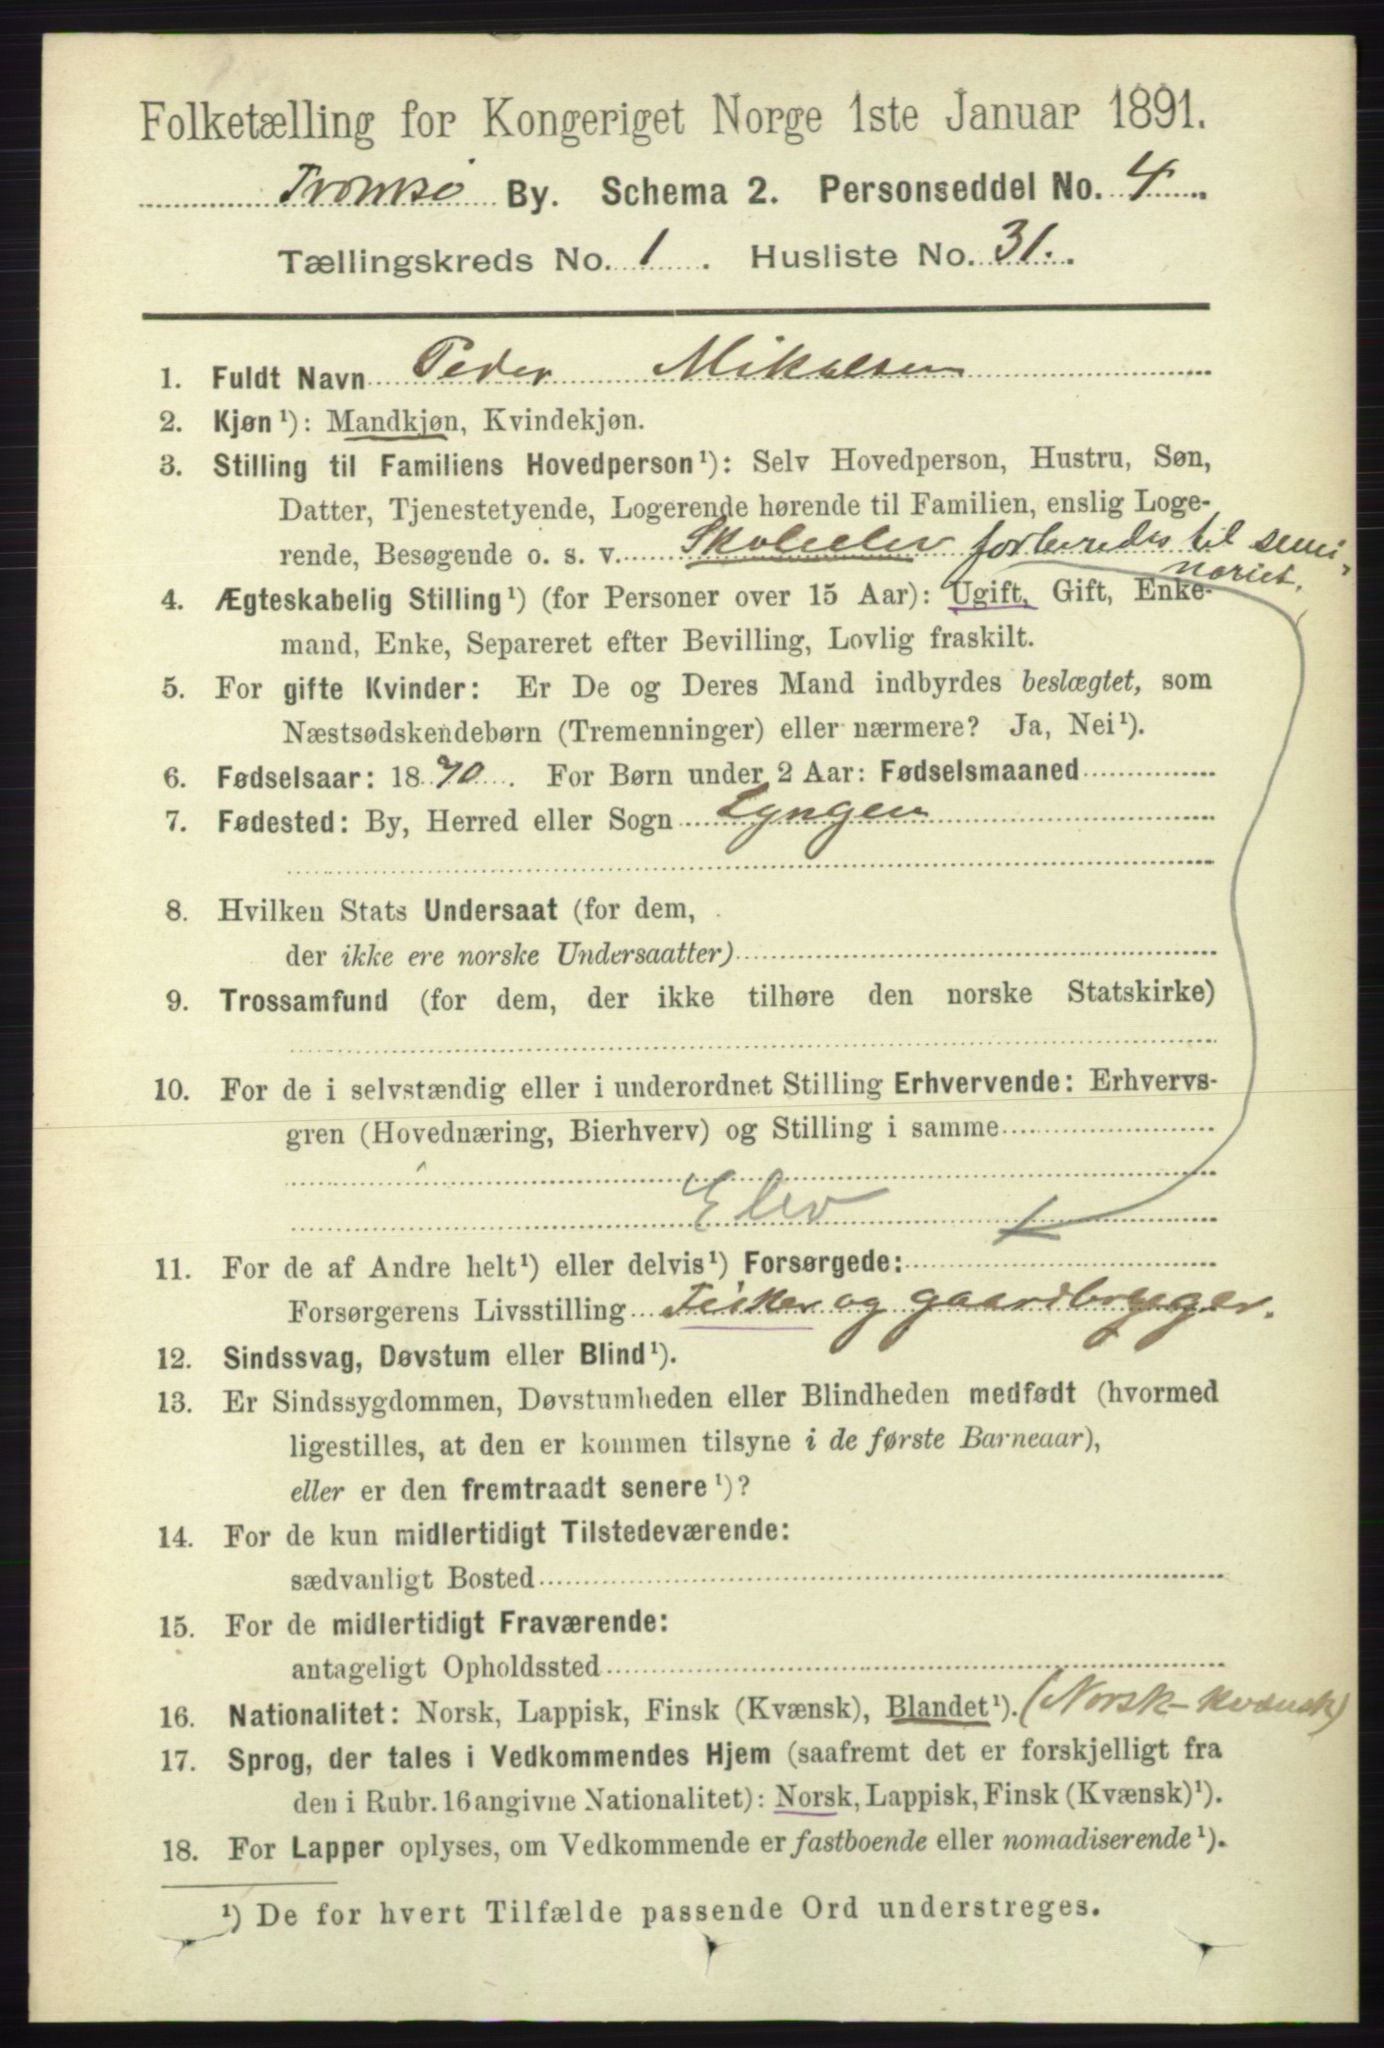 Folketælling for Kongeriget Norge 1ste Januar 1891.
Tromsø By. Schema 2. Personseddel No. 4
Tællingskreds No. 1. Husliste No. 31.
1. Fuldt Navn Peder Mikalsen
2. Kjøn¹): Mandkjøn, Kvindekjøn.
3. Stilling til Familiens Hovedperson¹): Selv Hovedperson, Hustru, Søn,
Datter, Tjenestetyende, Logerende hørende til Familien, enslig Loge-
rende, Besøgende o. s. v. Skoleelev forberedes til semi-
nariet.
4. Ægteskabelig Stilling¹) (for Personer over 15 Aar): Ugift, Gift, Enke-
mand, Enke, Separeret efter Bevilling, Lovlig fraskilt.
5. For gifte Kvinder: Er De og Deres Mand indbyrdes beslægtet, som
Næstsødskendebørn (Tremenninger) eller nærmere? Ja, Nei¹).
6. Fødselsaar: 1870. For Børn under 2 Aar: Fødselsmaaned
7. Fødested: By, Herred eller Sogn Lyngen
8. Hvilken Stats Undersaat (for dem,
der ikke ere norske Undersaatter)
9. Trossamfund (for dem, der ikke tilhøre den norske Statskirke)
10. For de i selvstændig eller i underordnet Stilling Erhvervende: Erhvervs-
gren (Hovednæring, Bierhverv) og Stilling i samme
Elev
11. For de af Andre helt¹) eller delvis¹) Forsørgede:
Forsørgerens Livsstilling Fisker og gaardbryger.
12. Sindssvag, Døvstum eller Blind¹).
13. Er Sindssygdommen, Døvstumheden eller Blindheden medfødt (hvormed
ligestilles, at den er kommen tilsyne i de første Barneaar),
eller er den fremtraadt senere¹)?
14. For de kun midlertidigt Tilstedeværende:
sædvanligt Bosted
15. For de midlertidigt Fraværende:
antageligt Opholdssted
16. Nationalitet: Norsk, Lappisk, Finsk (Kvænsk), Blandet¹). (Norsk-kvænsk)
17. Sprog, der tales i Vedkommendes Hjem (saafremt det er forskjelligt fra
den i Rubr. 16 angivne Nationalitet): Norsk, Lappisk, Finsk (Kvænsk)¹).
18. For Lapper oplyses, om Vedkommende er fastboende eller nomadiserende¹).
¹) De for hvert Tilfælde passende Ord understreges.